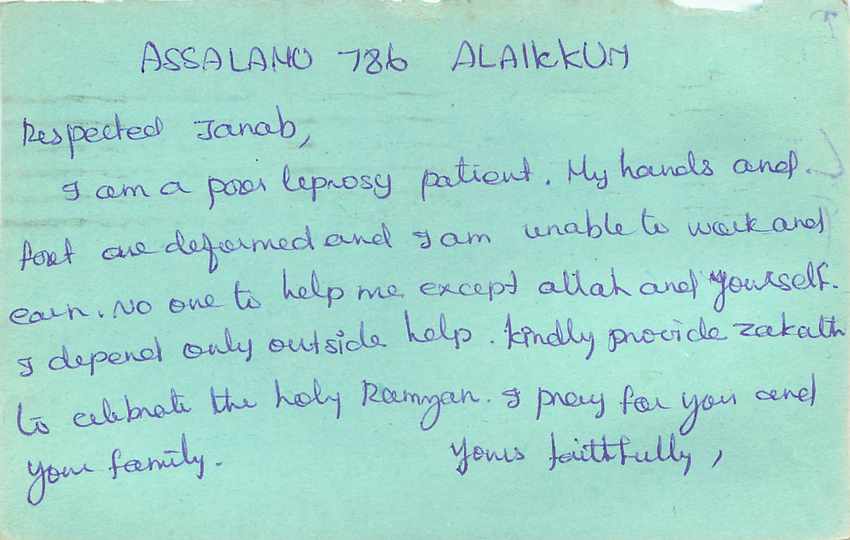 ASSALAMO 786 ALAIKKUM
Respected Janab,
I am a poor leprosy patient. My hands and
feet are deformed and I am unable to work and
earn. No one to help me except allah and yourself.
I depend only outside help. kindly provide zakath
to celebrate the holy Ramzan. I pray for you and
your family. Yours faithfully,